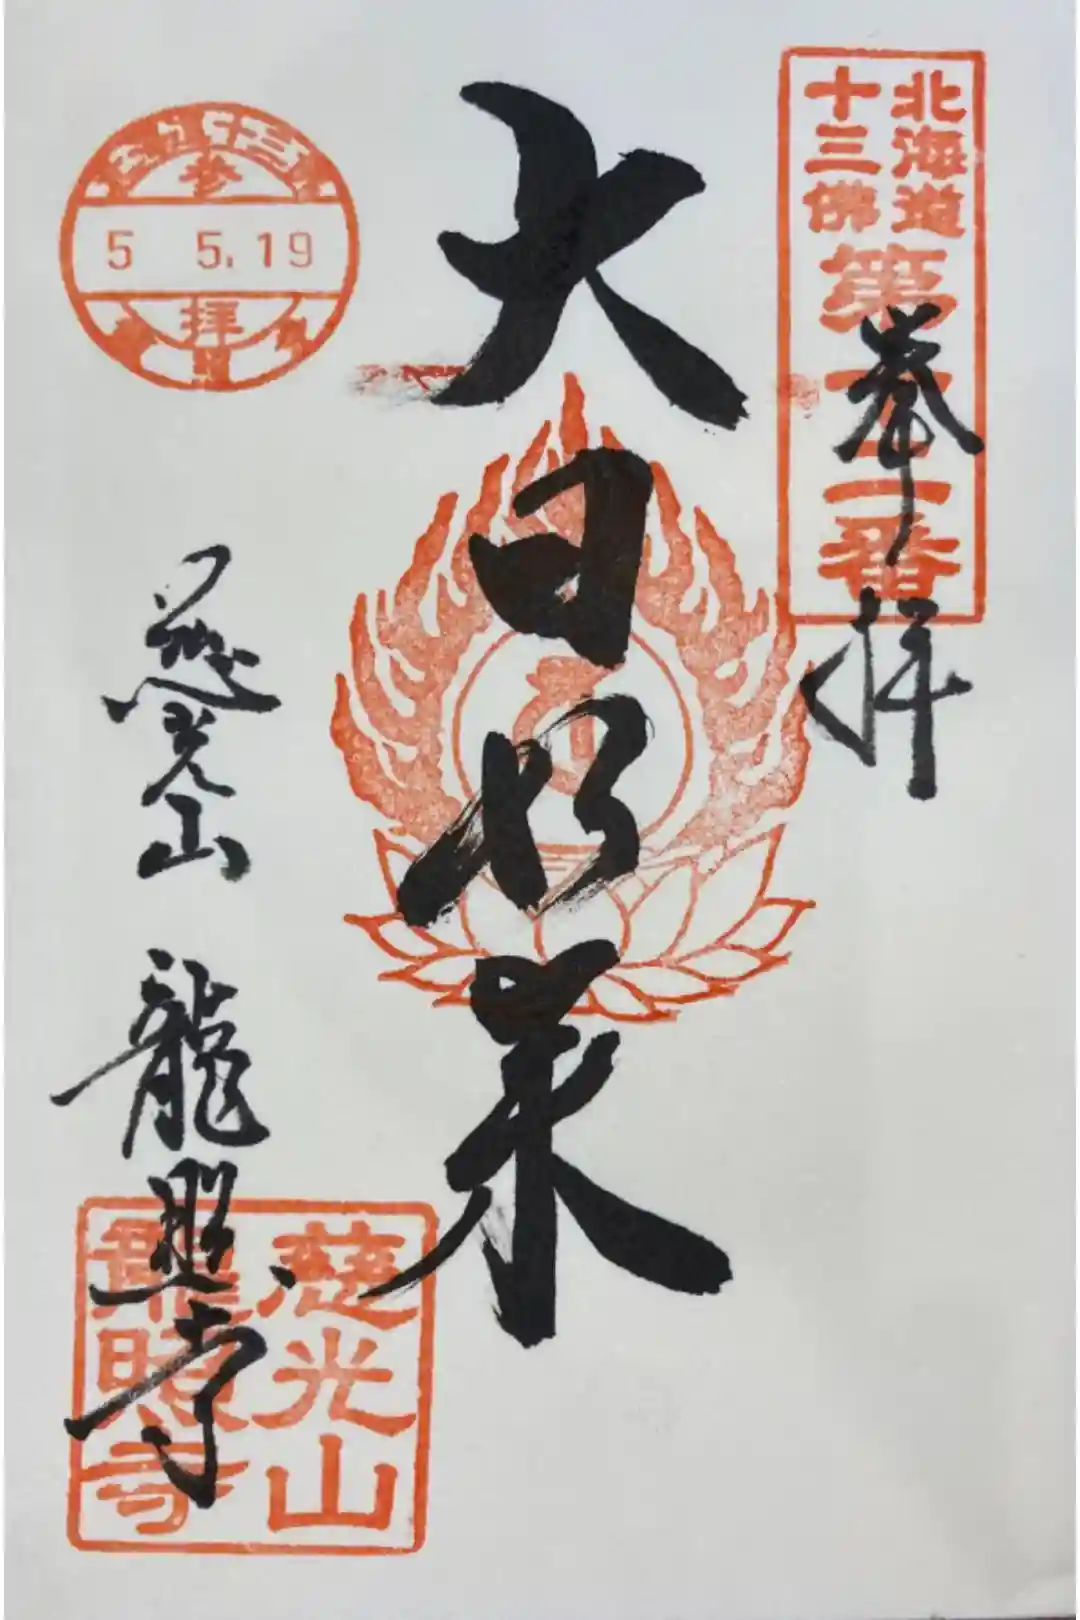 北海道
十三佛
第十二番
奉拝
大日如来
参
5 5.19
拝
慈光山 龍照寺
慈光山
龍照寺